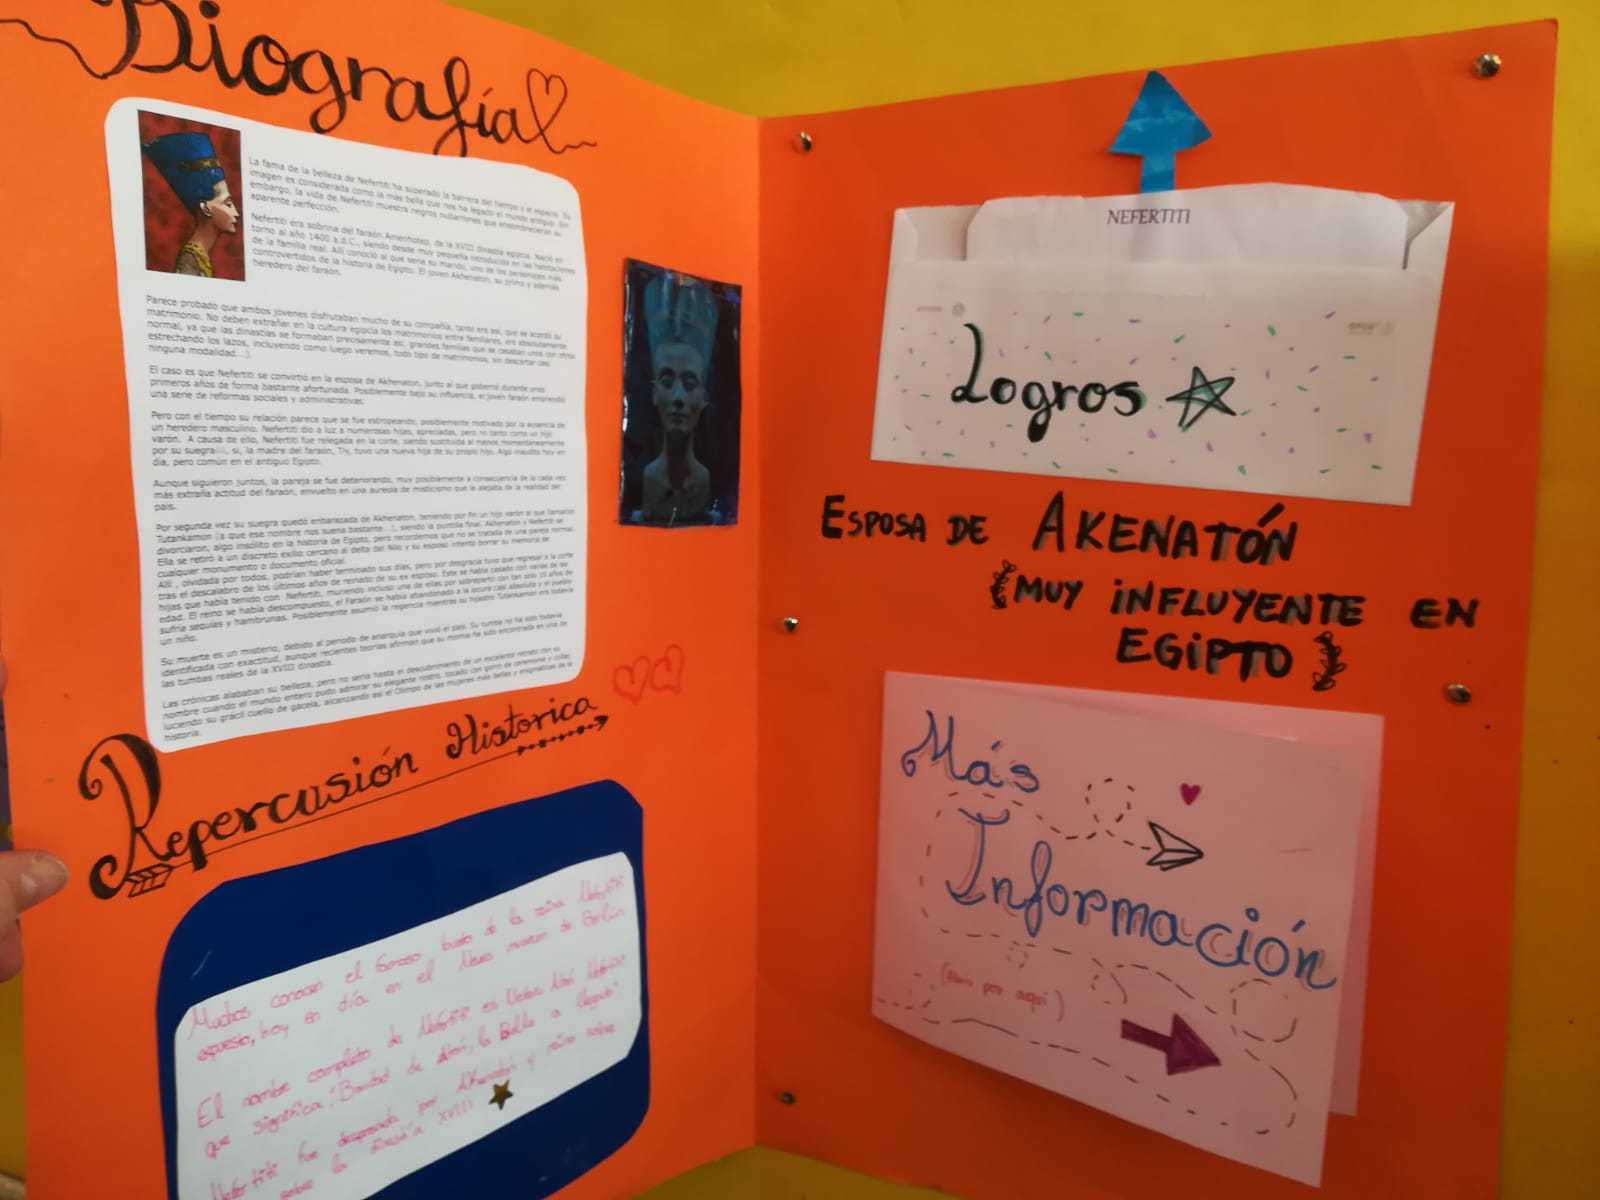 Biografía
La fama de la belleza de Nefertiti ha superado la barrera del tiempo y el espacio. Su
imagen es considerada como la más bella que nos ha legado el mundo antiguo. Sin
embargo, la vida de Nefertiti muestra negros nubarrones que ensombrecieron su
aparente perfección.
Nefertiti era sobrina del faraón Amenhotep, de la XVIII dinastía egipcia. Nació en
torno al año 1400 a.d.C., siendo desde muy pequeña introducida en las habitaciones
de la familia real. Allí conoció al que sería su marido, uno de los personajes más
controvertidos de la historia de Egipto: El joven Akhenaton, su primo y además
heredero del faraón.
Parece probado que ambos jóvenes disfrutaban mucho de su compañía, tanto era así, que se acordó su
matrimonio. No deben extrañar en la cultura egipcia los matrimonios entre familiares, era absolutamente
normal, ya que las dinastías se formaban precisamente así, grandes familias que se casaban unos con otros
estrechando los lazos, incluyendo como luego veremos, todo tipo de matrimonios, sin descartar casi
ninguna modalidad...).
El caso es que Nefertiti se convirtió en la esposa de Akhenaton, junto al que gobernó durante unos
primeros años de forma bastante afortunada. Posiblemente bajo su influencia, el joven faraón emprendió
una serie de reformas sociales y administrativas.
Pero con el tiempo su relación parece que se fue estropeando, posiblemente motivado por la ausencia de
un heredero masculino. Nefertiti dio a luz a numerosas hijas, apreciadas, pero no tanto como un hijo
varón. A causa de ello, Nefertiti fue relegada en la corte, siendo sustituida al menos momentáneamente
por su suegra, si, la madre del faraón, Tiy, tuvo una nueva hija de su propio hijo. Algo inaudito hoy en
día, pero común en el antiguo Egipto.
Aunque siguieron juntos, la pareja se fue deteriorando, muy posiblemente a consecuencia de la cada vez
más extraña actitud del faraón, envuelto en una aureola de misticismo que le alejaba de la realidad del
país.
Por segunda vez su suegra quedó embarazada de Akhenaton, teniendo por fin un hijo varón al que llamaron
Tutankamon (a que ese nombre nos suena bastante...), siendo la puntilla final. Akhenaton y Nefertiti se
divorciaron, algo insólito en la historia de Egipto, pero recordemos que no se trataba de una pareja normal.
Ella se retiró a un discreto exilio cercano al delta del Nilo y su esposo intentó borrar su memoria de
cualquier monumento o documento oficial.
Allí, olvidada por todos, podrían haber terminado sus días, pero por desgracia tuvo que regresar a la corte
tras el descalabro de los últimos años de reinado de su ex esposo. Este se había casado con varias de las
hijas que había tenido con Nefertiti, muriendo incluso una de ellas por sobreparto con tan solo 15 años de
edad. El reino se había descompuesto, el Faraón se había abandonado a la locura casi absoluta y el pueblo
sufría sequías y hambrunas. Posiblemente asumió la regencia mientras su hijastro Tutankamon era todavía
un niño.
Su muerte es un misterio, debido al periodo de anarquía que vivió el país. Su tumba no ha sido todavía
identificada con exactitud, aunque recientes teorías afirman que su momia ha sido encontrada en una de
las tumbas reales de la XVIII dinastía.
Las crónicas alababan su belleza, pero no sería hasta el descubrimiento de un excelente retrato con su
nombre cuando el mundo entero pudo admirar su elegante rostro, tocado con gorro de ceremonia y collar,
luciendo su grácil cuello de gacela, alcanzando así el Olimpo de las mujeres más bellas y enigmáticas de la
historia.
Repercusión Historica
Muchos conocen el famoso busto de la reina Nefertiti
expuesto, hoy en día en el Neues museum de Berlín
El nombre completo de Nefertiti es Nefer Atón Nefertiti
que significa: "Bondad de Atón, la Bella a llegado".
Nefertiti fue desposada por Akenatón y reino sobre
sobre la dinastía XVIII
NEFERTITI
Logros
ESPOSA DE AKENATÓN
(MUY INFLUYENTE EN
EGIPTO)
Más
Información
(Abrir por aquí)